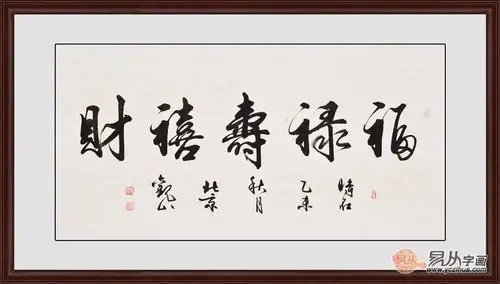 福禄壽禧財
時在
乙未
秋月
北京
觀山
易从字画
www.yczihua.com